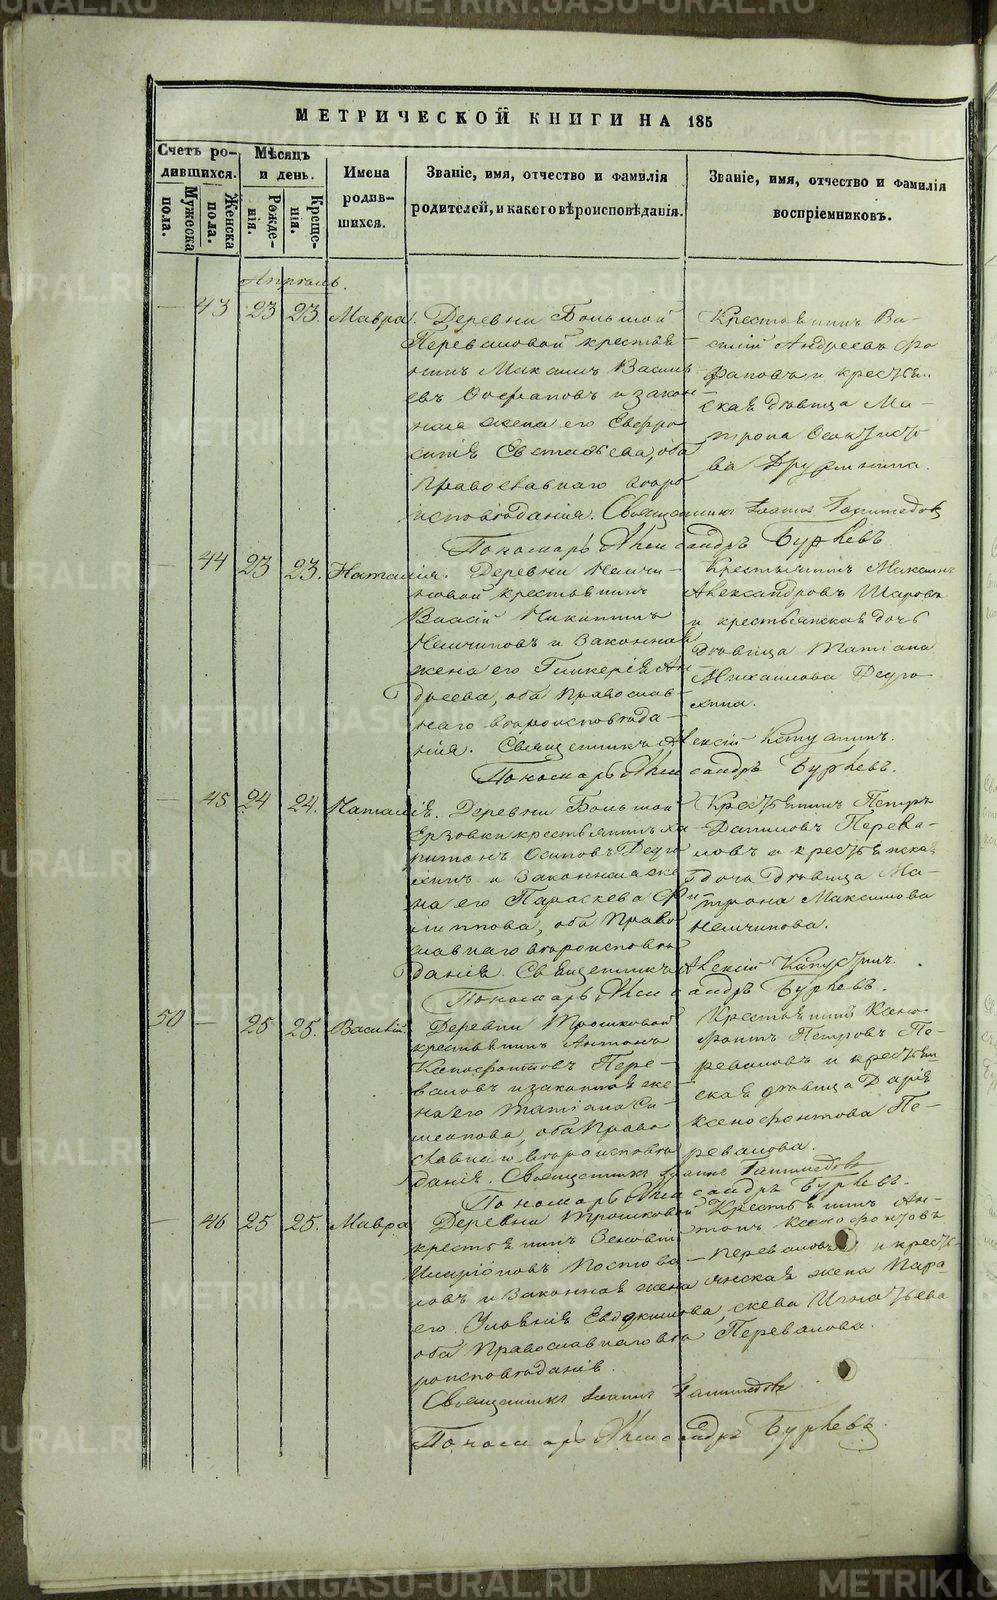 МЕТРИЧЕСКОЙ КНИГИ НА 185
Счетъ ро-
дившихся.
Мужеска пола.
Женска пола.
Мѣсяцъ
и день.
Рожде-
нія.
Креще-
нія.
Имена
родив-
шихся.
Званіе, имя, отчество и фамилія
родителей, и какого вѣроисповѣданія.
Званіе, имя, отчество и фамилія
воспріемниковъ.
Апрѣль.
43 23 23. Мавра.
Деревни Большой
Переваловой крестья-
нинъ Максимъ Василь-
евъ и закон-
ная жена его Евфро-
синія Евстафьева, оба
Православнаго вѣро-
исповѣданія. Священникъ Іоаннъ
Пономарь Александръ Бурцевъ.
Крестьянинъ Ва-
силій Андреевъ
и крестьян-
ская дѣвица Ма-
трона
44 23 23. Наталія.
Деревни Немчи-
новой крестьянинъ
Васлій Никитинъ
Немчиновъ и законная
жена его Гликерія Ан-
дреева, оба Православ-
наго вѣроисповѣда-
нія. Священникъ Алексій Капустинъ.
Пономарь Александръ Бурцевъ.
Крестьянинъ Максимъ
Александровъ Шаровъ
и крестьянская дочь
дѣвица Татіана
Михаилова
45 24 24. Наталія.
Деревни Большой
Ерзовки крестьянинъ Ха-
ритонъ Осиповъ
и законная же-
на его Параскева Фи-
липпова, оба Право-
славнаго вѣроисповѣ-
данія. Священникъ Алексій Капустинъ.
Пономарь Александръ Бурцевъ.
Крестьянинъ Петръ
Даниловъ Перева-
ловъ и крестьянская
дочь дѣвица Ма-
трона Максимова
Немчинова.
50 25 25. Василій.
Деревни Трошковой
крестьянинъ Антонъ
Ксенофонтовъ Пере-
валовъ и законная же-
на его Татіана
оба Право-
славнаго вѣроисповѣ-
данія. Священникъ Іоаннъ
Пономарь Александръ Бурцевъ.
Крестьянинъ Ксено-
фонтъ Петровъ Пе-
реваловъ и крестьян-
ская дѣвица Дарія
Ксенофонтова Пе-
ревалова.
46 25 25. Мавра
Деревни Трошковой
крестьянинъ Зеновій
Иларіоновъ Постова-
ловъ и законная жена
его Уліанія Евдокимова,
оба Православнаго вѣ-
роисповѣданія.
Священникъ Іоаннъ
Пономарь Александръ Бурцевъ.
Крестьянинъ Ан-
тонъ Ксенофонтовъ
Переваловъ и кресть-
янская жена Пара-
скева Игнатьева
Перевалова.
METRIKI.GASO-URAL.RU